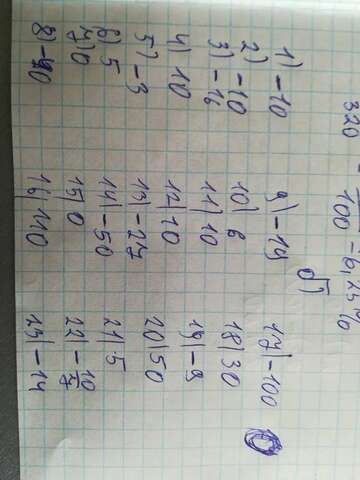 320
100 = 6,25%
1) -10 9) -14 17) -100
2) -10 10) 6 18) 30
3) -16 11) 10 19) -9
4) 10 12) 10 20) 50
5) -3 13) -27 21) 5
6) 5 14) -50 22) -10/7
7) 0 15) 0 23) -14
8) 16) 110